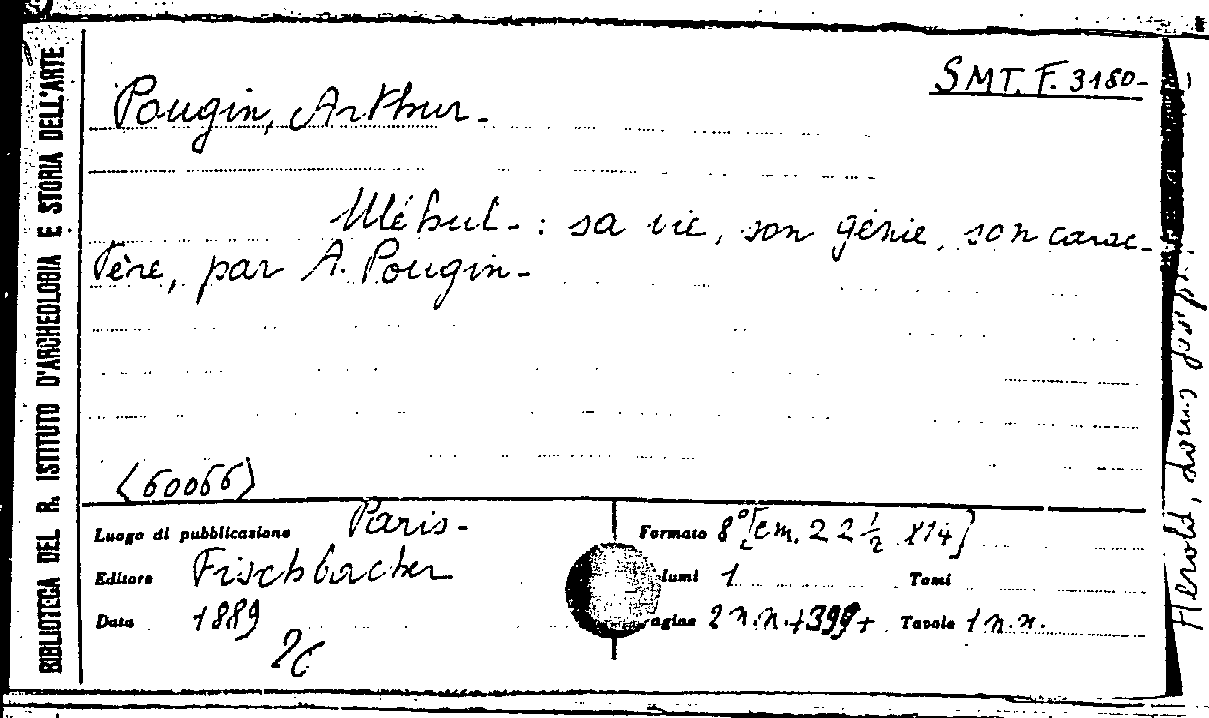 BIBLIOTECA DEL R. ISTITUTO D'ARCHEOLOGIA E STORIA DELL'ARTE
SMT. F. 3180-
Pougin, Arthur.
Méhul- : sa vie, son génie, son carac-
tère, par A. Pougin-
(60066)
Luogo di pubblicazione Paris-
Editore Fischbacher
Data 1889
Formato 8° [cm. 22 1/2 X14]
lumi 1 Tomi
agine 2 n.n.+399+ Tavole 1 n.n.
Herold, Louis